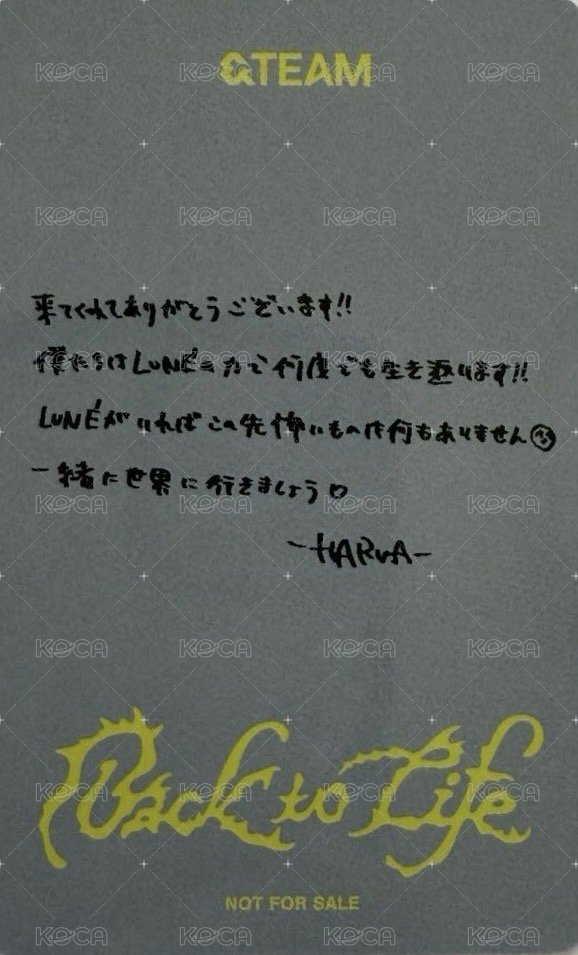 &TEAM
来てくれてありがとうございます!!
僕たちはLUNÉの力で何度でも生き返ります!!
LUNÉがいればこの先怖いものは何もありません
一緒に世界に行きましょう♡
-HARUA-
Back to Life
NOT FOR SALE
KOCA